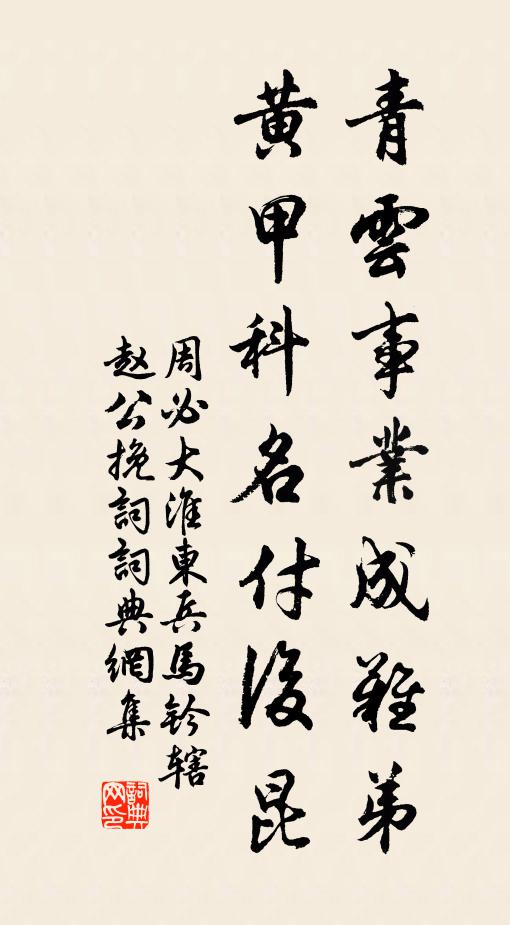 青雲事業成難弟
黃甲科名付後昆
周必大淮東兵馬鈐轄
赵公挽詞詞典網集
詞典网印